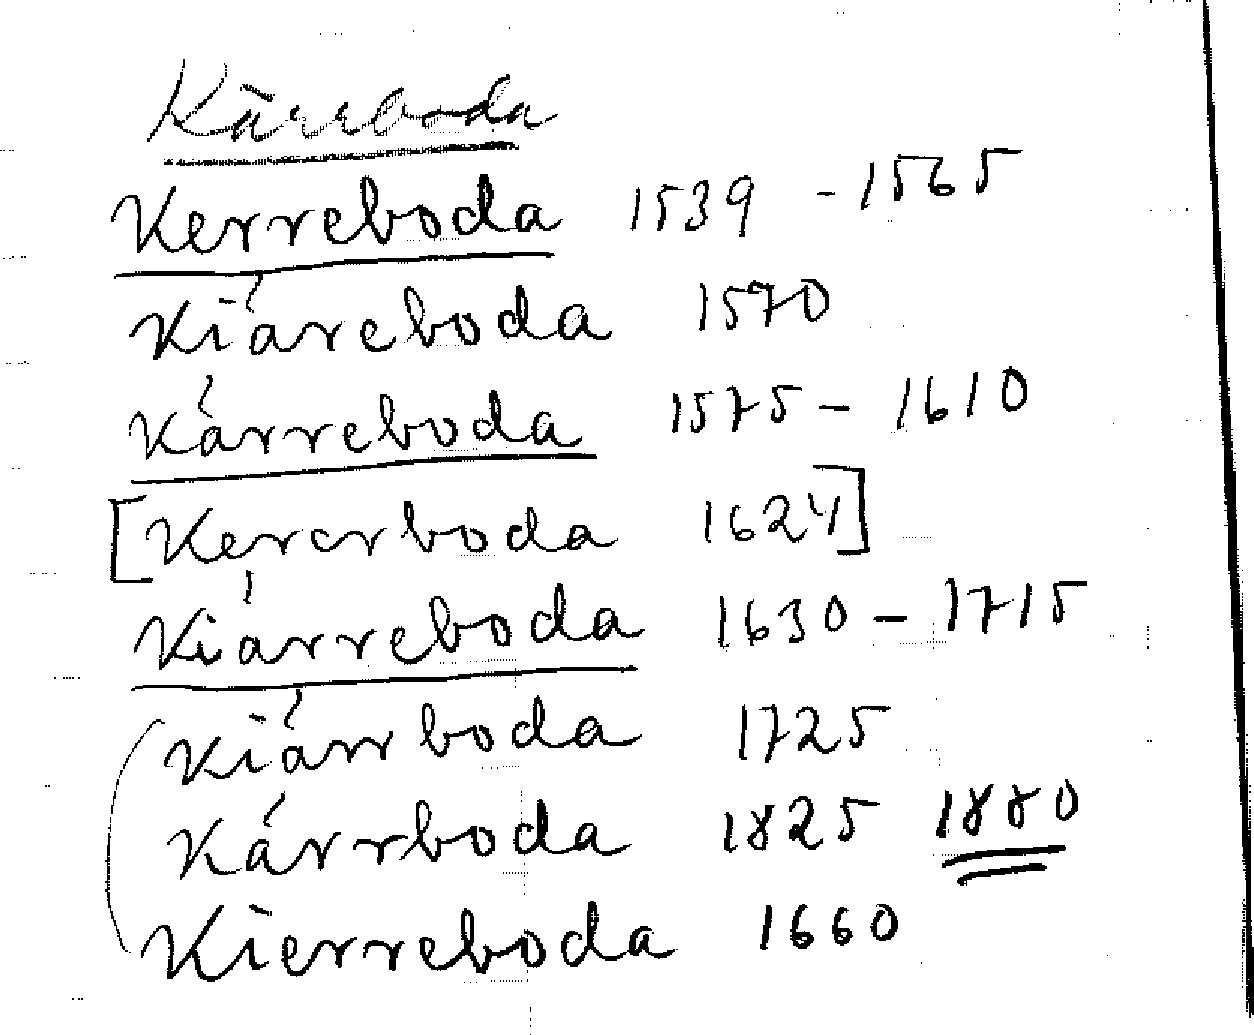 Kärreboda
Kerreboda 1539 - 1565
Kiáreboda 1570
Kárreboda 1575 - 1610
[Kerarboda 1624]
Kiárreboda 1630 - 1715
Kiárrboda 1725
Kárrboda 1825 1880
Kierreboda 1660